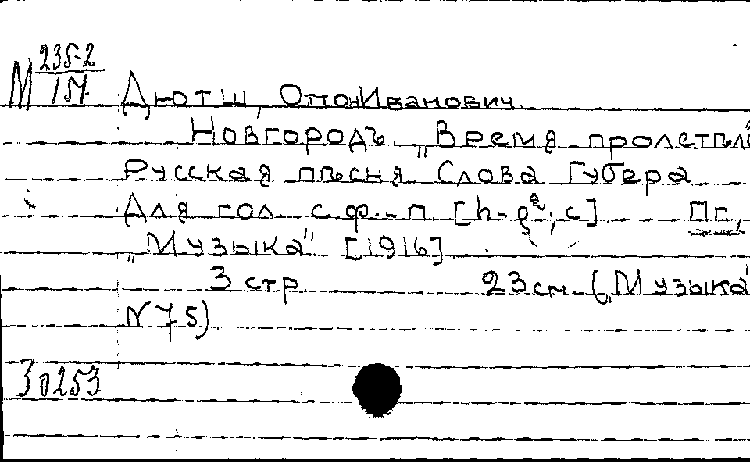 М 235-2
157
Дютш, Отто Иванович.
Новгородъ. "Время пролетѣло
Русская пѣсня Слова Губера
Для гол. с ф.-п [h-g²; c] Пг.,
"Музыка" [1916]
3 стр 23 см. ("Музыка"
N 75)
30253